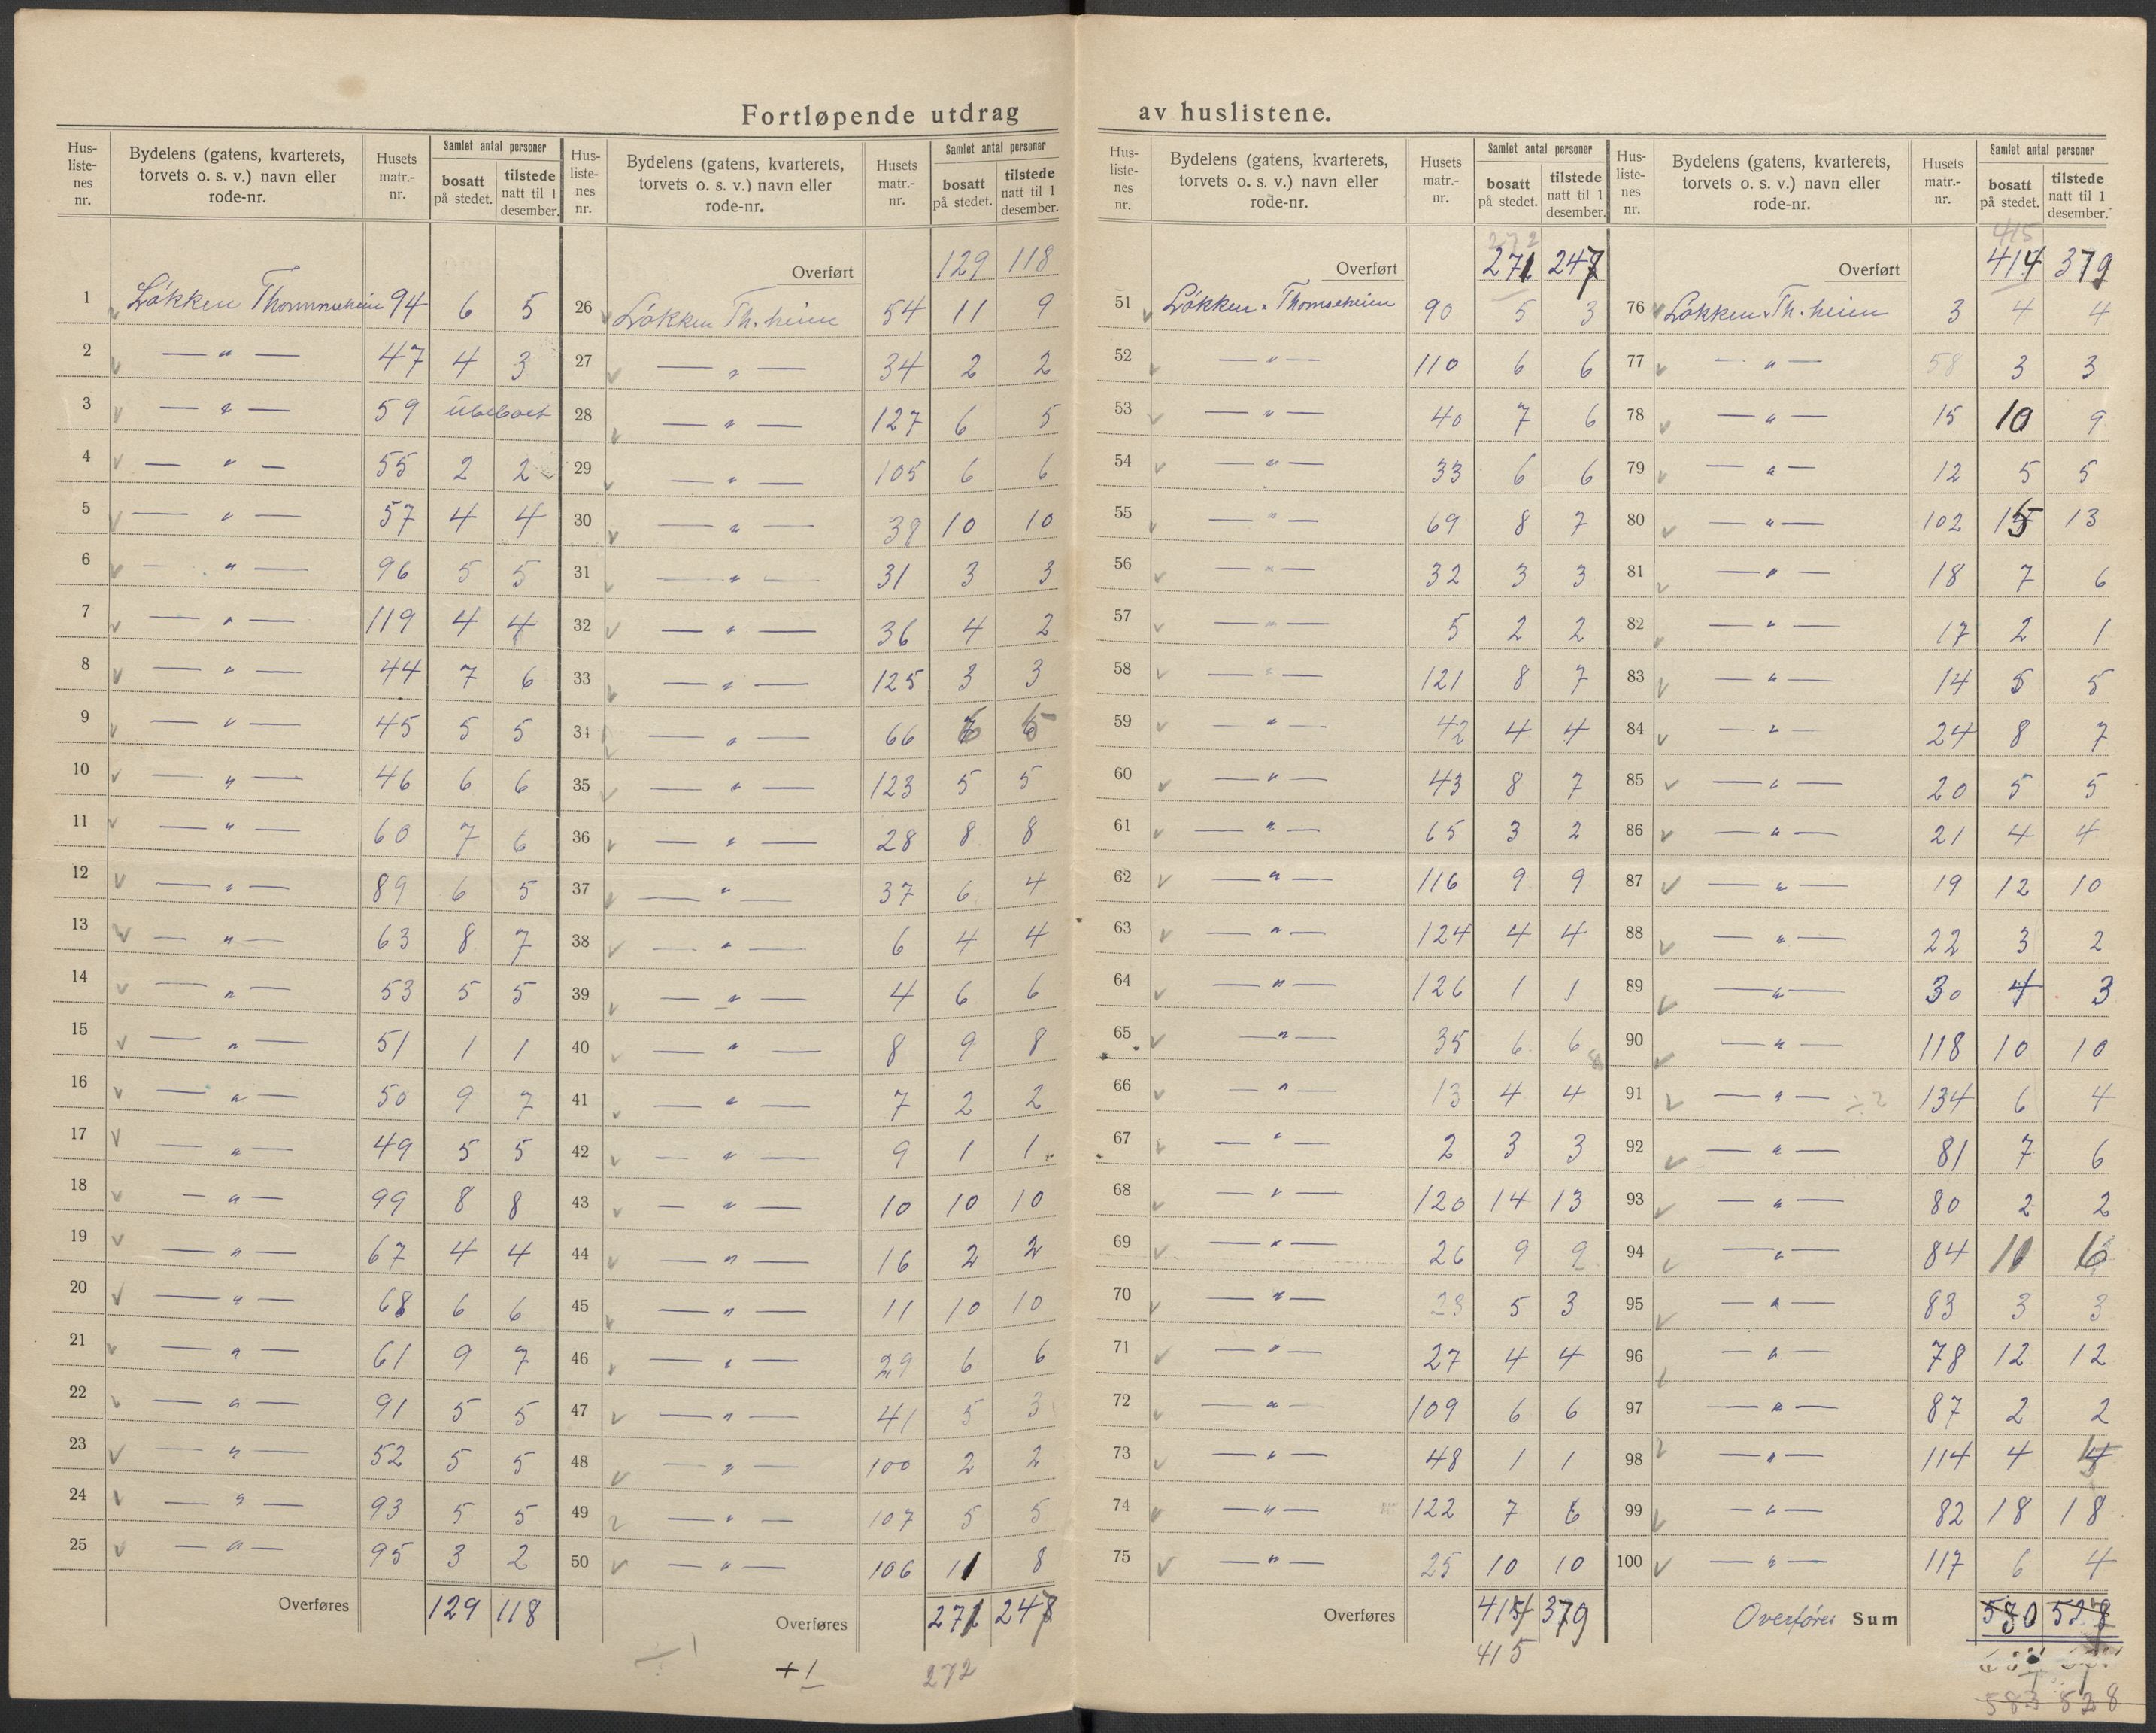 Fortløpende utdrag av huslistene.
Hus-liste-nes nr. | Bydelens (gatens, kvarterets, torvets o. s. v.) navn eller rode-nr. | Husets matr.-nr. | Samlet antal personer bosatt på stedet. | tilstede natt til 1 desember.
1 Løkken Thommeheim 94 6 5
2 — " — 47 4 3
3 — " — 59 ubeboet
4 — " — 55 2 2
5 — " — 57 4 4
6 — " — 96 5 5
7 — " — 119 4 4
8 — " — 44 7 6
9 — " — 45 5 5
10 — " — 46 6 6
11 — " — 60 7 6
12 — " — 89 6 5
13 — " — 63 8 7
14 — " — 53 5 5
15 — " — 51 1 1
16 — " — 50 9 7
17 — " — 49 5 5
18 — " — 99 8 8
19 — " — 67 4 4
20 — " — 68 6 6
21 — " — 61 9 7
22 — " — 91 5 5
23 — " — 52 5 5
24 — " — 93 5 5
25 — " — 95 3 2
Overføres 129 118
Hus-liste-nes nr. | Bydelens (gatens, kvarterets, torvets o. s. v.) navn eller rode-nr. | Husets matr.-nr. | Samlet antal personer bosatt på stedet. | tilstede natt til 1 desember.
Overført 129 118
26 Løkken Th. heim 54 11 9
27 — " — 34 2 2
28 — " — 127 6 5
29 — " — 105 6 6
30 — " — 39 10 10
31 — " — 31 3 3
32 — " — 36 4 2
33 — " — 125 3 3
34 — " — 66 6 5
35 — " — 123 5 5
36 — " — 28 8 8
37 — " — 37 6 4
38 — " — 6 4 4
39 — " — 4 6 6
40 — " — 8 9 8
41 — " — 7 2 2
42 — " — 9 1 1
43 — " — 10 10 10
44 — " — 16 2 2
45 — " — 11 10 10
46 — " — 29 6 6
47 — " — 41 5 3
48 — " — 100 2 2
49 — " — 107 5 5
50 — " — 106 11 8
Overføres 271 247
÷ 1
+ 1 272
Hus-liste-nes nr. | Bydelens (gatens, kvarterets, torvets o. s. v.) navn eller rode-nr. | Husets matr.-nr. | Samlet antal personer bosatt på stedet. | tilstede natt til 1 desember.
272
Overført 271 247
51 Løkken. Thomseheim 90 5 3
52 — " — 110 6 6
53 — " — 40 7 6
54 — " — 33 6 6
55 — " — 69 8 7
56 — " — 32 3 3
57 — " — 5 2 2
58 — " — 121 8 7
59 — " — 42 4 4
60 — " — 43 8 7
61 — " — 65 3 2
62 — " — 116 9 9
63 — " — 124 4 4
64 — " — 126 1 1
65 — " — 35 6 6
66 — " — 13 4 4
67 — " — 2 3 3
68 — " — 120 14 13
69 — " — 26 9 9
70 — " — 23 5 3
71 — " — 27 4 4
72 — " — 109 6 6
73 — " — 48 1 1
74 — " — 122 7 6
75 — " — 25 10 10
Overføres 414 379
415
Hus-liste-nes nr. | Bydelens (gatens, kvarterets, torvets o. s. v.) navn eller rode-nr. | Husets matr.-nr. | Samlet antal personer bosatt på stedet. | tilstede natt til 1 desember.
415
Overført 414 379
76 Løkken. Th. heim 3 4 4
77 — " — 58 3 3
78 — " — 15 10 9
79 — " — 12 5 5
80 — " — 102 15 13
81 — " — 18 7 6
82 — " — 17 2 1
83 — " — 14 5 5
84 — " — 24 8 7
85 — " — 20 5 5
86 — " — 21 4 4
87 — " — 19 12 10
88 — " — 22 3 2
89 — " — 30 4 3
90 — " — 118 10 10
91 — " — ÷2 134 6 4
92 — " — 81 7 6
93 — " — 80 2 2
94 — " — 84
95 — " — 83 3 3
96 — " — 78 12 12
97 — " — 87 2 2
98 — " — 114 4
99 — " — 82 18 18
100 — " — 117 6 4
Overføres Sum 580 527